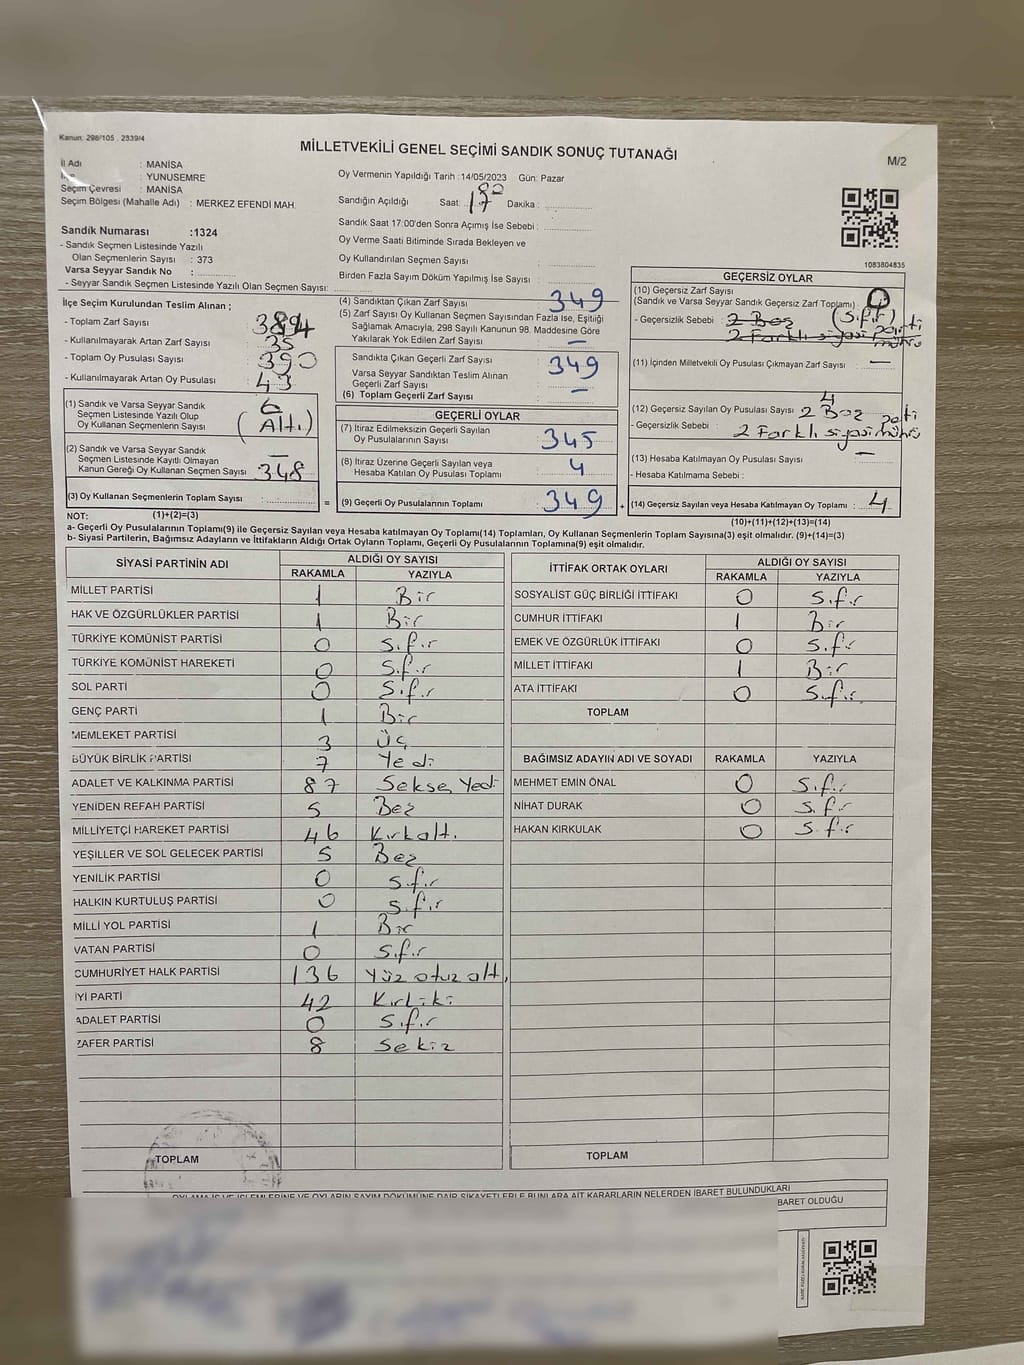 Kanun: 298/105 , 2839/4
MİLLETVEKİLİ GENEL SEÇİMİ SANDIK SONUÇ TUTANAĞI
M/2
İl Adı : MANİSA
: YUNUSEMRE
Seçim Çevresi : MANİSA
Seçim Bölgesi (Mahalle Adı) : MERKEZ EFENDİ MAH.
Sandık Numarası :1324
- Sandık Seçmen Listesinde Yazılı
Olan Seçmenlerin Sayısı : 373
Varsa Seyyar Sandık No :
- Seyyar Sandık Seçmen Listesinde Yazılı Olan Seçmen Sayısı:
Oy Vermenin Yapıldığı Tarih :14/05/2023 Gün: Pazar
Sandığın Açıldığı Saat: 17 Dakika :
Sandık Saat 17:00'den Sonra Açımış İse Sebebi :
Oy Verme Saati Bitiminde Sırada Bekleyen ve
Oy Kullandırılan Seçmen Sayısı :
Birden Fazla Sayım Döküm Yapılmış İse Sayısı :
1083804835
İlçe Seçim Kurulundan Teslim Alınan ;
- Toplam Zarf Sayısı :
- Kullanılmayarak Artan Zarf Sayısı : 35
- Toplam Oy Pusulası Sayısı : 390
- Kullanılmayarak Artan Oy Pusulası : 43
(1) Sandık ve Varsa Seyyar Sandık
Seçmen Listesinde Yazılı Olup
Oy Kullanan Seçmenlerin Sayısı
6
(Altı)
(2) Sandık ve Varsa Seyyar Sandık
Seçmen Listesinde Kayıtlı Olmayan
Kanun Gereği Oy Kullanan Seçmen Sayısı : 348
(3) Oy Kullanan Seçmenlerin Toplam Sayısı : =
(4) Sandıktan Çıkan Zarf Sayısı : 349
(5) Zarf Sayısı Oy Kullanan Seçmen Sayısından Fazla İse, Eşitliği
Sağlamak Amacıyla, 298 Sayılı Kanunun 98. Maddesine Göre
Yakılarak Yok Edilen Zarf Sayısı : —
Sandıkta Çıkan Geçerli Zarf Sayısı : 349
Varsa Seyyar Sandıktan Teslim Alınan
Geçerli Zarf Sayısı : —
(6) Toplam Geçerli Zarf Sayısı :
GEÇERLİ OYLAR
(7) İtiraz Edilmeksizin Geçerli Sayılan
Oy Pusulalarının Sayısı : 345
(8) İtiraz Üzerine Geçerli Sayılan veya
Hesaba Katılan Oy Pusulası Toplamı : 4
(9) Geçerli Oy Pusulalarının Toplamı : 349 +
GEÇERSİZ OYLAR
(10) Geçersiz Zarf Sayısı
(Sandık ve Varsa Seyyar Sandık Geçersiz Zarf Toplamı) : 0
(Sıfır)
- Geçersizlik Sebebi : 2 Boş
2 Farklı siyasi parti mührü
(11) İçinden Milletvekili Oy Pusulası Çıkmayan Zarf Sayısı : —
4
(12) Geçersiz Sayılan Oy Pusulası Sayısı : 2 Boş
- Geçersizlik Sebebi : 2 Farklı siyasi parti mührü
(13) Hesaba Katılmayan Oy Pusulası Sayısı : —
- Hesaba Katılmama Sebebi :
(14) Geçersiz Sayılan veya Hesaba Katılmayan Oy Toplamı : 4
NOT: (1)+(2)=(3)
(10)+(11)+(12)+(13)=(14)
a- Geçerli Oy Pusulalarının Toplamı(9) ile Geçersiz Sayılan veya Hesaba katılmayan Oy Toplamı(14) Toplamları, Oy Kullanan Seçmenlerin Toplam Sayısına(3) eşit olmalıdır. (9)+(14)=(3)
b- Siyasi Partilerin, Bağımsız Adayların ve İttifakların Aldığı Ortak Oyların Toplamı, Geçerli Oy Pusulalarının Toplamına(9) eşit olmalıdır.
SİYASİ PARTİNİN ADI ALDIĞI OY SAYISI
RAKAMLA YAZIYLA
MİLLET PARTİSİ 1 Bir
HAK VE ÖZGÜRLÜKLER PARTİSİ 1 Bir
TÜRKİYE KOMÜNİST PARTİSİ 0 Sıfır
TÜRKİYE KOMÜNİST HAREKETİ 0 Sıfır
SOL PARTİ 0 Sıfır
GENÇ PARTİ 1 Bir
MEMLEKET PARTİSİ 3 Üç
BÜYÜK BİRLİK PARTİSİ 7 Yedi
ADALET VE KALKINMA PARTİSİ 87 Seksen Yedi
YENİDEN REFAH PARTİSİ 5 Beş
MİLLİYETÇİ HAREKET PARTİSİ 46 Kırkaltı
YEŞİLLER VE SOL GELECEK PARTİSİ 5 Beş
YENİLİK PARTİSİ 0 Sıfır
HALKIN KURTULUŞ PARTİSİ 0 Sıfır
MİLLİ YOL PARTİSİ 1 Bir
VATAN PARTİSİ 0 Sıfır
CUMHURİYET HALK PARTİSİ 136 Yüz otuz altı
İYİ PARTİ 42 Kırkiki
ADALET PARTİSİ 0 Sıfır
ZAFER PARTİSİ 8 Sekiz
TOPLAM
İTTİFAK ORTAK OYLARI ALDIĞI OY SAYISI
RAKAMLA YAZIYLA
SOSYALİST GÜÇ BİRLİĞİ İTTİFAKI 0 Sıfır
CUMHUR İTTİFAKI 1 Bir
EMEK VE ÖZGÜRLÜK İTTİFAKI 0 Sıfır
MİLLET İTTİFAKI 1 Bir
ATA İTTİFAKI 0 Sıfır
TOPLAM
BAĞIMSIZ ADAYIN ADI VE SOYADI RAKAMLA YAZIYLA
MEHMET EMİN ÖNAL 0 Sıfır
NİHAT DURAK 0 Sıfır
HAKAN KIRKULAK 0 Sıfır
TOPLAM
OYLAMA İŞ VE İŞLEMLERİNE VE OYLARIN SAYIM DÖKÜMÜNE DAİR ŞİKAYETLERLE BUNLARA AİT KARARLARIN NELERDEN İBARET BULUNDUKLARI
BARET OLDUĞU